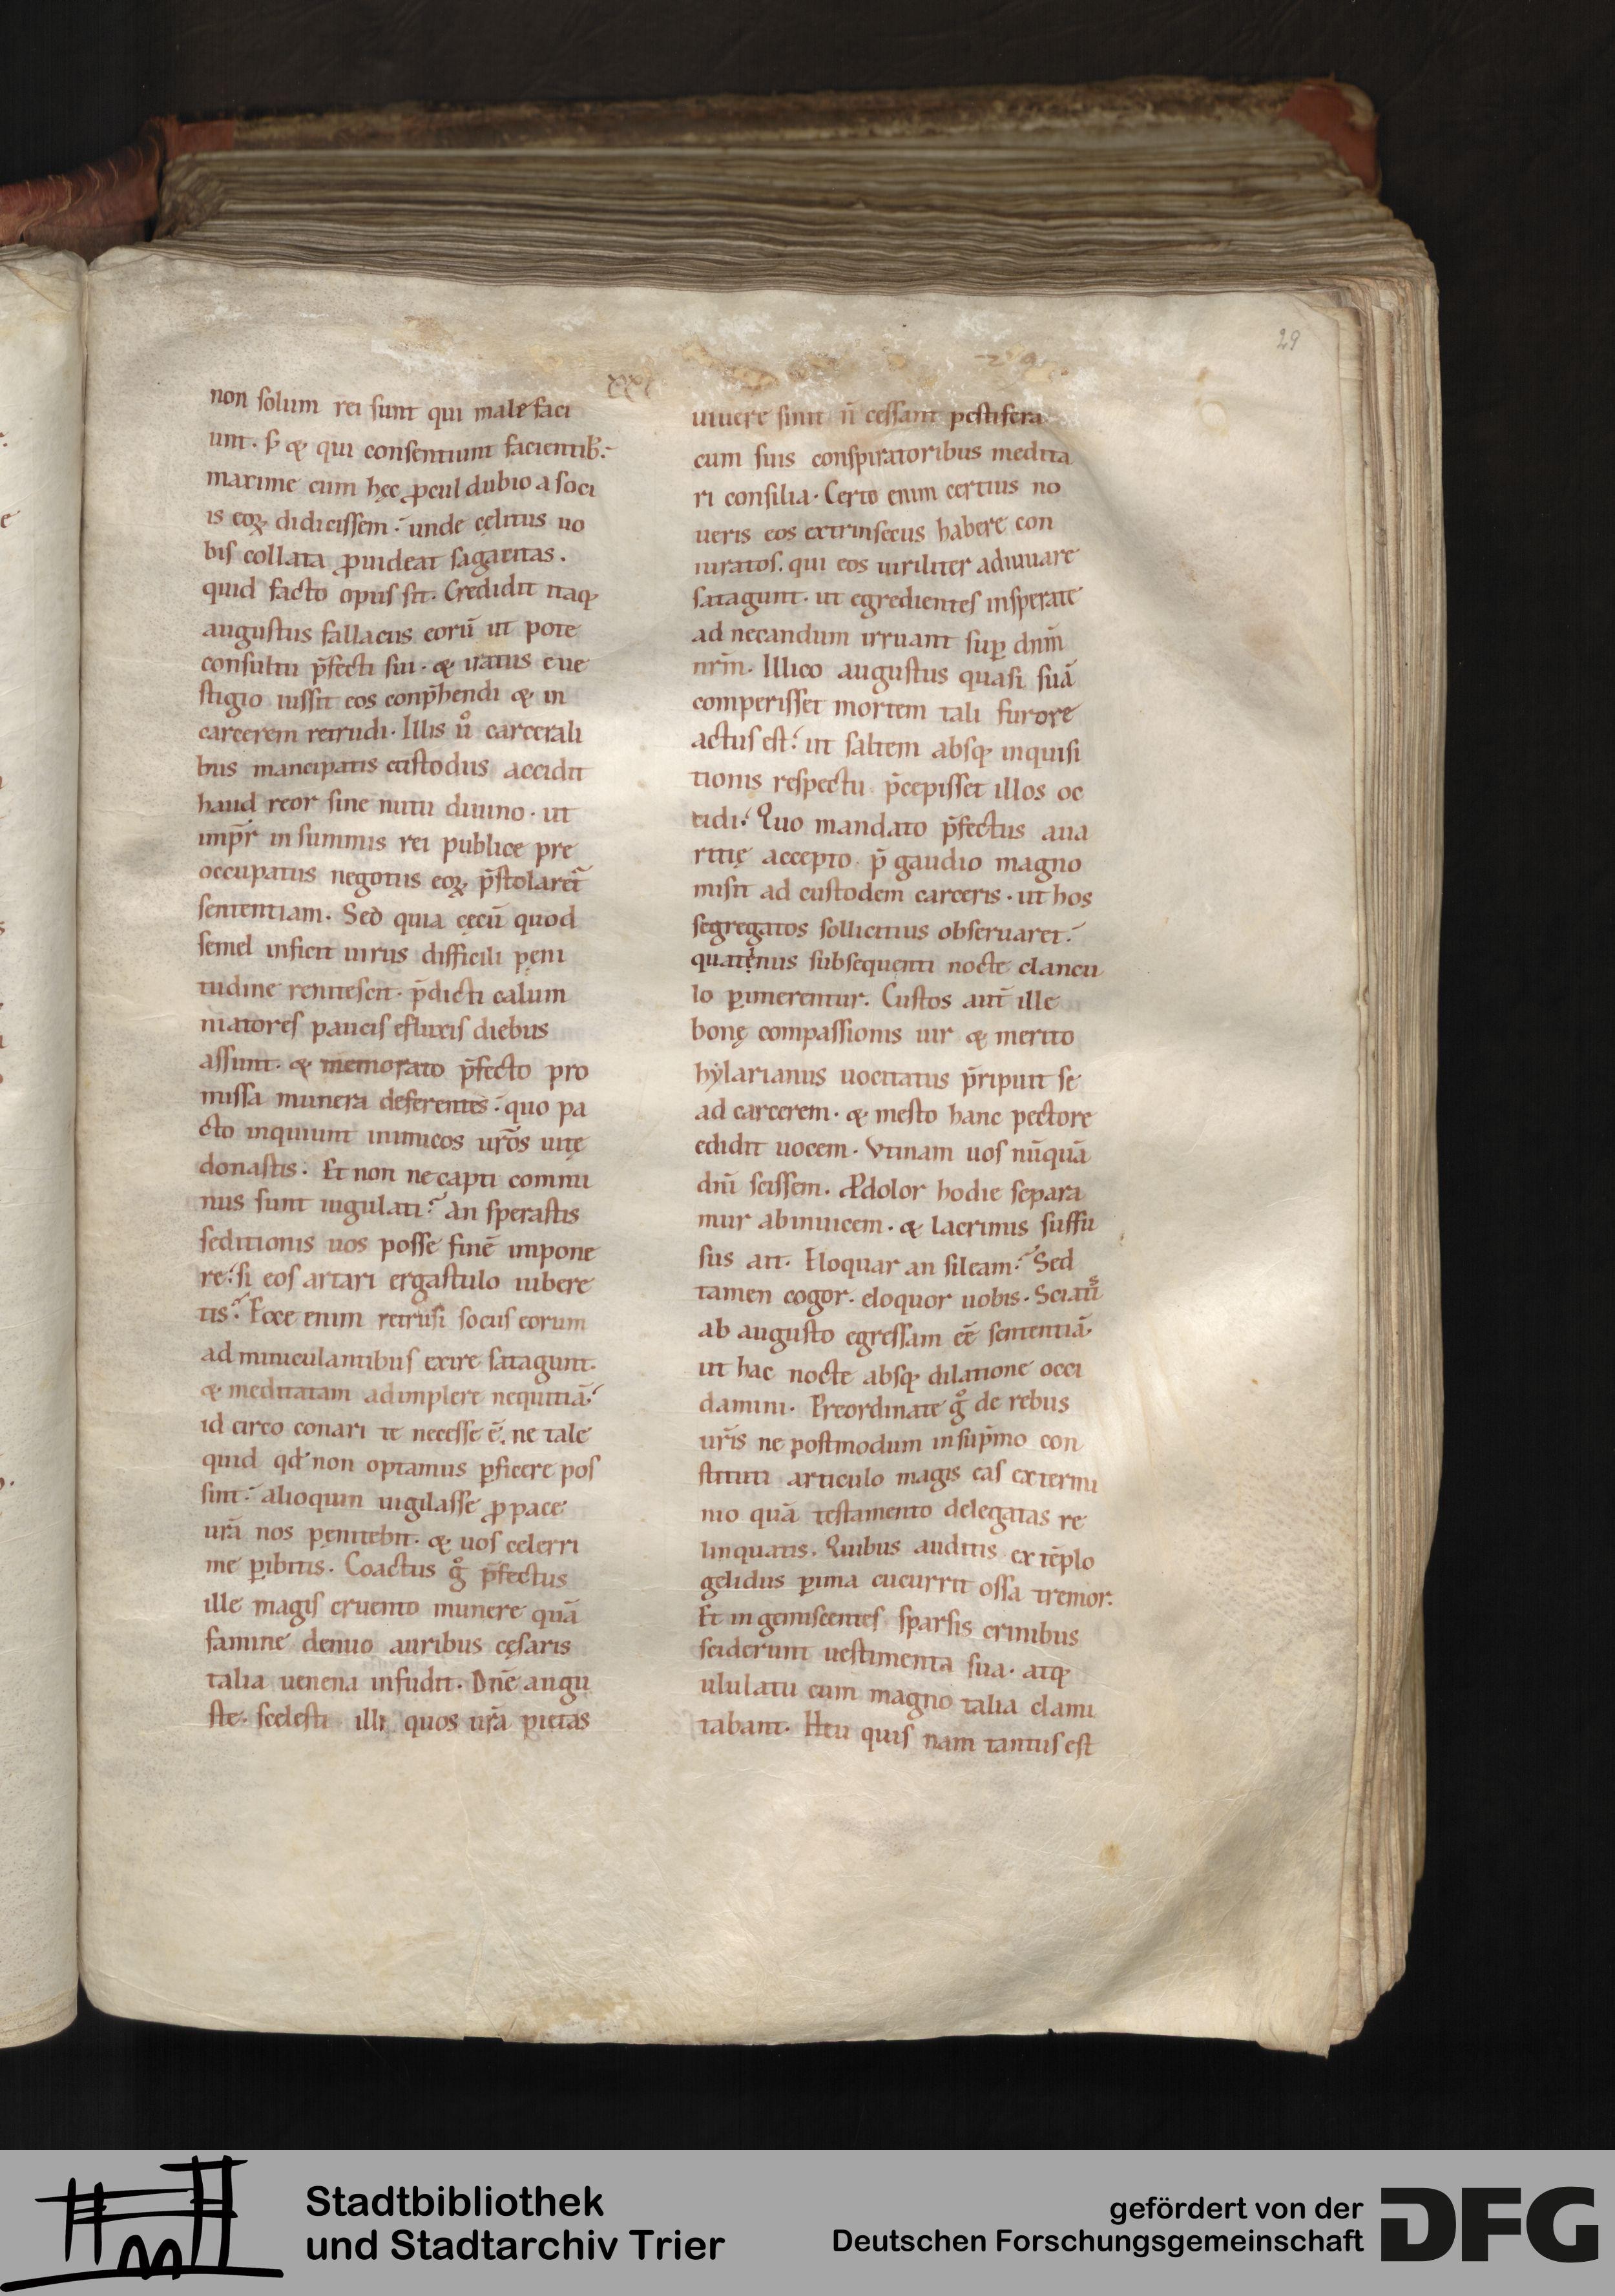 29
xxx
non solum rei sunt qui male faci
unt. s̄ & qui consentiunt facientib;
maxime cum hęc ꝓcul dubio a soci
is eoꝝ didicissem. unde cęlitus uo
bis collata ꝓuideat sagacitas.
quid facto opus sit. Credidit itaq;
augustus fallaciis eorū ut pote
consultu p̄fecti sui. & iratus e ue
stigio iussit eos conp̄hendi & in
carcerem retrudi. Illis ů carcerali
bus mancipatis custodiis accidit
haud reor sine nutu diuino. ut
imp̄r in summis rei publice pre
occupatus negotiis eoꝝ p̄stolaret̃
sententiam. Sed quia cęcū quod
semel inficit uirus difficili pęni
tudine renitescit. p̄dicti calum
niatores paucis efluxis diebus
assunt. & memorato p̄fecto pro
missa munera deferentes. quo pa
cto inquiunt inimicos ur̄os uitę
donastis. Et non ne capti commi
nus sunt iugulati? An sperastis
seditionis uos posse finē impone
re. si eos artari ergastulo iubere
tis? Ecce enim retrusi sociis eorum
adminiculantibus exire satagunt.
& meditatam adimplere nequitiā.
id circo conari te necesse ē. ne tale
quid qđ non optamus ꝑficere pos
sint. alioquin uigilasse ꝓ pace
urā nos pęnitebit. & uos celerri
me ꝑibitis. Coactus g̊ p̄fectus
ille magis cruento munere quā
famine denuo auribus cęsaris
talia uenena infudit. Dn̄e augu
ste. scelesti illi quos ur̄a pietas
uiuere sinit n̄ cessant pestifera
cum suis conspiratoribus medita
ri consilia. Certo enim certius no
ueris eos extrinsecus habere con
iuratos. qui eos uiriliter adiuuare
satagunt. ut egredientes insperate
ad necandum irruant suꝑ dn̄m
nr̄m. Illico augustus quasi suā
comperisset mortem tali furore
actus est. ut saltem absq; inquisi
tionis respectu p̄cepisset illos oc
cidi. Quo mandato p̄fectus aua
ritię accepto. p̄ gaudio magno
misit ad custodem carceris. ut hos
segregatos sollicitius obseruaret.
quatęnus subsequenti nocte clancu
lo ꝑimerentur. Custos aut̄ ille
bonę compassionis uir & merito
hẏlarianus uocitatus p̄ripuit se
ad carcerem. & mesto hanc pectore
edidit uocem. Vtinam uos nūquā
diu scissem. Ꝓdolor hodie separa
mur abinuicem. & lacrimis suffu
sus ait. Eloquar an sileam? Sed
tamen cogor. eloquor uobis. Sciatis
ab augusto egressam eē sententiā.
ut hac nocte absq; dilatione occi
damini. Preordinate g̊ de rebus
ur̄is ne postmodum in sup̄mo con
stituti articulo magis eas extermi
nio quā testamento delegatas re
linquatis. Quibus auditis extēplo
gelidus ꝑ ima cucurrit ossa tremor.
Et ingemiscentes sparsis crinibus
sciderunt uestimenta sua. atq;
ululatu cum magno talia clami
tabant. Heu quis nam tantus est
Stadtbibliothek
und Stadtarchiv Trier
gefördert von der
Deutschen Forschungsgemeinschaft
DFG